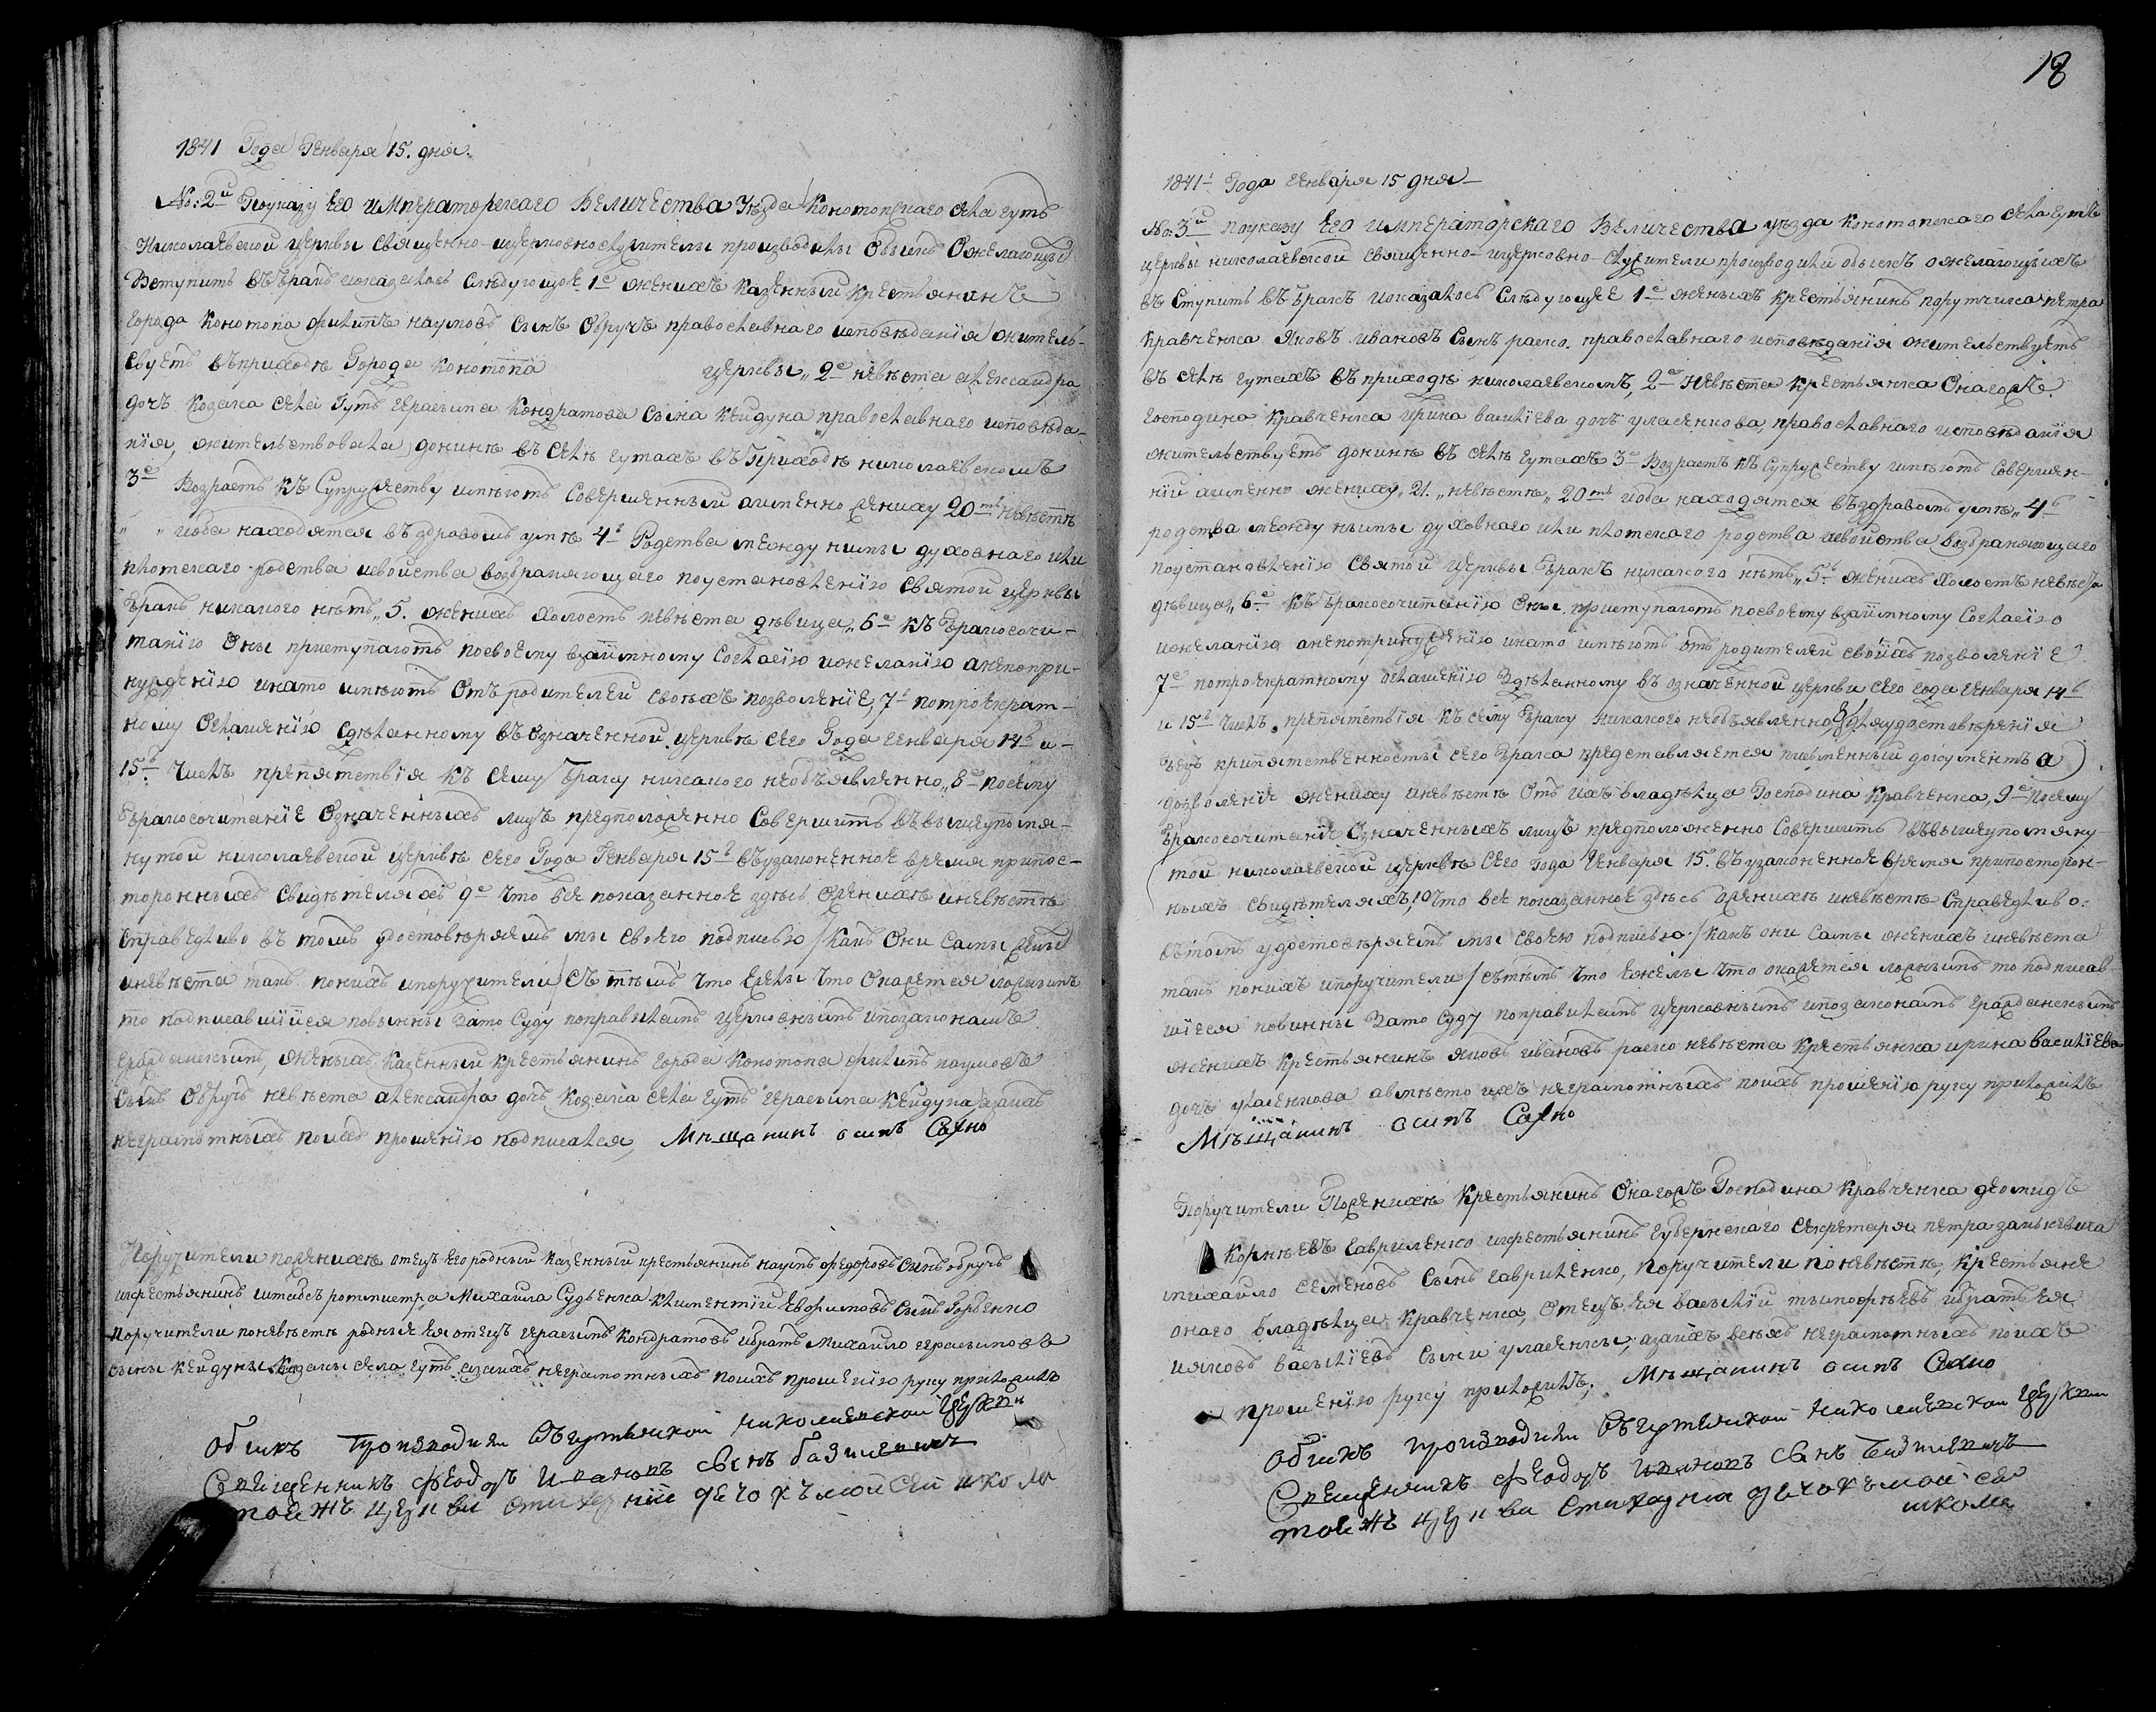 1841 Года Генваря 15. дня.
No: 2й Поуказу Его императорскаго Величества Уезда Конотопскаго села гутъ
Николаевской церквы священно-ицерковнослужители производилы обыскъ Ожелающы
Вступить въбракъ ипоказалось Слѣдующое. 1е женихъ казенный крестьянинъ
города Конотопа филипъ наумовъ Сынъ Обручъ православнаго исповѣданія жителъ-
свуетъ въприходѣ Города Конотопа церквы, 2е невѣста александра
дочъ козака села Гутъ герасима Кондратова Сына Кейдуна православнаго исповѣда-
нія, жительствовала донинѣ въ селѣ гутахъ въ Приходѣ николаевскомъ
3е Возрастъ къ Супружеству имѣютъ Совершенный аименно жениху 20ть невѣстѣ
„ „ иоба находятся въздравомъ умѣ 4е Родства между нимы духовнаго или
плотскаго родства исвойства возбраняющаго поустановленію святой церквы
бракъ никакого нѣтъ, 5. женихъ холостъ невѣста дѣвица, 6е къ Бракосочи-
танію Оны приступаютъ посвоему взаимному Согласію ижеланію анепопри-
нужденію инато имѣютъ Отъ родителей своихъ позволеніе, 7е потроекрат-
ному Оглашенію Сдѣланному въозначенной церквѣ сего Года генваря 14е и-
15е Числъ препятствія къ сему бракау никакого необъявленно, 8е посему
Бракосочитаніе Означенныхъ лицъ предположенно Совершить въвышеупомя-
нутой николаевской церквѣ сего Года Генваря 15е въузаконенное время припос-
тороннихъ Свидѣтеляхъ 9е Что все показанное здѣсь Оженихѣ иневѣстѣ
Справедливо въ томъ удостовѣряемъ мы своею подписью / Какъ Они Самы женихъ
иневѣста такъ поихъ ипоручители / съ тѣмъ что Ежелы Что Окажется ложнымъ
то подписавшійся повынны Зато Суду поправиламъ церковнымъ ипозаконамъ
гражданскимъ, женихъ Казенный крестьянинъ города Конотопа филипъ наумовъ
Сынъ Обручъ невѣста александра дочъ козака села гутъ герасима Кейдуна азаихъ
неграмотныхъ поихъ прошенію подписался, Мѣщанинъ осипъ Сахно
Поручители поженихѣ отецъ его родный казенный крестьянинъ наумъ федоровъ сынъ обручъ
икрестьянинъ штабсъ ротмистра Михаила Судьенка климентий Евфимовъ Сынъ Горбенко
Поручители поневѣстѣ родные Ея отецъ герасимъ Кондратовъ ибратъ Михайло герасимовъ
сыны Кейдуны Козакы села гутъ азаихъ неграмотныхъ поихъ прошенію руку приложилъ
обискъ производили Съгутянской николаевской церкви
Священникъ Феодоръ Ивановъ Синъ базилевичъ
тоеижъ церкви стихарний дечокъ
18
1841 Года генваря 15 дня
No: 3й поуказу Его императорскаго Величества уезда конотопскаго села гутъ
церквы николаевской священно-ицерковно-служители производили обыскъ ожелающихъ
въ Ступить въбракъ ипоказалось Слѣдующее 1е женыхъ крестьянинъ порутчика петра
Кравченка Яковъ ивановъ Сынъ раско. православнаго исповѣданія жительствуетъ
въ селѣ гутахъ въ приходѣ николаевскомъ, 2е невѣста Крестьянка Онагожъ
Господина Кравченка ирина василіева дочъ уласенкова, православнаго исповѣданія
жительствуетъ донинѣ въ селѣ гутахъ 3е Возрастъ къ Супружеству имѣютъ Совершен-
ній аименно жениху, 21. „невѣстѣ„ 20ть иоба находятся въздравомъ умѣ, 4е
родства между нымы духовнаго или плотскаго родства исвойства возбраняющаго
поустановленію святой церквы бракъ никакого нѣтъ, 5е женихъ холостъ невѣста
дѣвица, 6е къ Бракосочитанію Оны приступаютъ посвоему взаимному Согласію
ижеланію анепопринужденію инато имѣютъ отъ родителей своихъ позволеніе
7е потроекратному оглашенію Здѣланному въ означенной церкви сего года генваря 14е
и 15е Числъ препятствія къ сему браку никакого необъявленно, 8е дляудостовѣренія
безъ припятственносты сего брака представляется писменный документъ а)
дозволенія жениху иневѣстѣ Отъ ихъ владѣльца Господина Кравченка, 9е посему
Бракосочитаніе Означенныхъ лицъ предположенно Совершить въвышеупомяну-
той николаевской церквѣ сего года Генваря 15. въ узаконенное время припосторон-
ныхъ свидѣтеляхъ, 10 Что все показанное здѣсь оженихѣ иневѣстѣ Справедливо:
вътомъ удостовѣряемъ мы своею подписью / Какъ они Самы женихъ иневѣста
такъ поихъ ипоручители / сътѣмъ что Ежелы Что окажется ложнымъ то подписав-
шіеся повинны Зато Суду поправиламъ церковнымъ ипозаконамъ гражданскимъ
женихъ Крестьянинъ яковъ ивановъ раско невѣста крестьянка ирина василіева
дочъ уласенкова авмѣсто ихъ неграмотныхъ поихъ прошенію руку приложилъ
Мѣщанинъ осипъ Сахно
Поручители Поженихѣ Крестьянинъ Онагожъ Господина Кравченка деомидъ
Корнѣевъ гавриленко икрестьянинъ губернскаго секретаря петра занкевича
михайло семеновъ Сынъ гавриленко, поручители поневѣстѣ, крестьяне
онаго владѣльца Кравченка, Отецъ Ея василій тымофѣевъ ибратъ Ея
ияковъ васыліевъ Сыны уласенкы, азаихъ всѣхъ неграмотныхъ поихъ
прошенію руку приложилъ, Мѣщанинъ осипъ Сахно
обискъ производили Съгутянской николаевской церкви
Священникъ Феодоръ Ивановъ Синъ Базилевичъ
тоеижъ церкви стихарни дечокъ